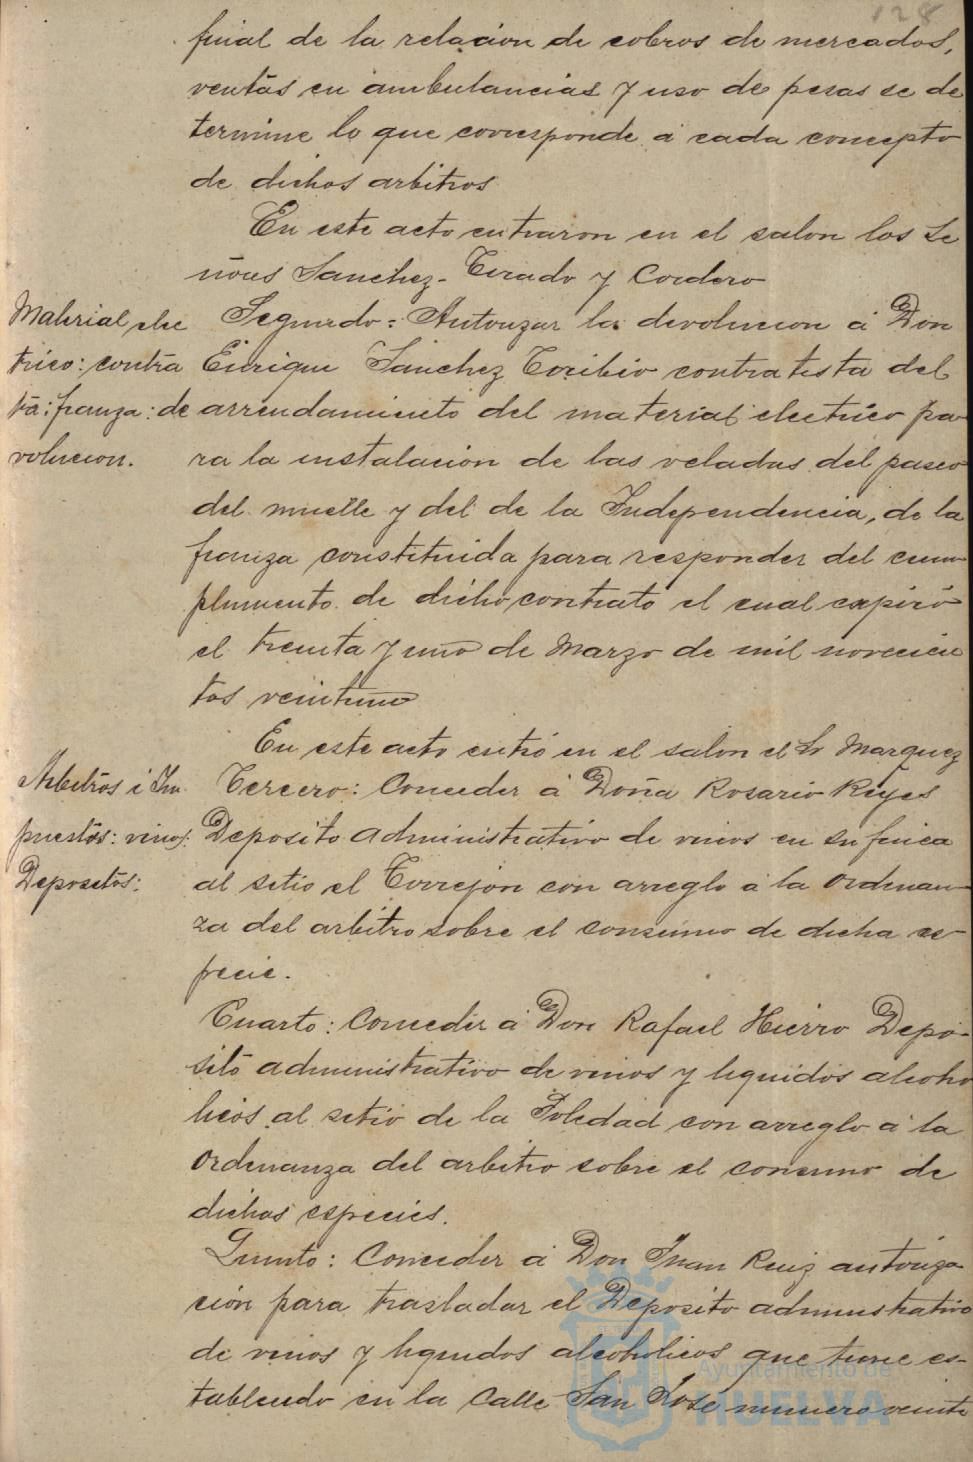 128
final de la relacion de cobros de mercados,
ventas en ambulancias y uso de pesas se de
termine lo que corresponde á cada concepto
de dichos arbitrios
En este acto entraron en el salon los Se
ñores Sanchez-Tirado y Cordero
Material elec
trico: contra
ta: fianza: de
volucion.
Segundo = Autorizar la devolucion á Don
Enrique Sanchez Toribio contratista del
arrendamiento del material electrico pa-
ra la instalacion de las veladas del paseo
del muelle y del de la Independencia, de la
fianza constituida para responder del cum-
plimiento de dicho contrato el cual expiró
el treinta y uno de Marzo de mil novecien
tos veintiuno
En este acto entró en el salon el Sr Marquez
Arbitrios é Im
puestos: vinos:
Depositos:
Tercero: Conceder á Doña Rosario Reyes
Deposito administrativo de vinos en su finca
al sitio el Torrejon con arreglo á la ordenan-
za del arbitrio sobre el consumo de dicha es-
pecie.
Cuarto: Conceder á Don Rafael Hierro Depo-
sito administrativo de vinos y liquidos alcoho
licos al sitio de la Soledad con arreglo á la
ordenanza del arbitrio sobre el consumo de
dichas especies.
Quinto: Conceder á Don Juan Ruiz autoriza-
cion para trasladar el Deposito administrativo
de vinos y liquidos alcoholicos que tiene es-
tablecido en la Calle San José numero veinte
Ayuntamiento de
HUELVA